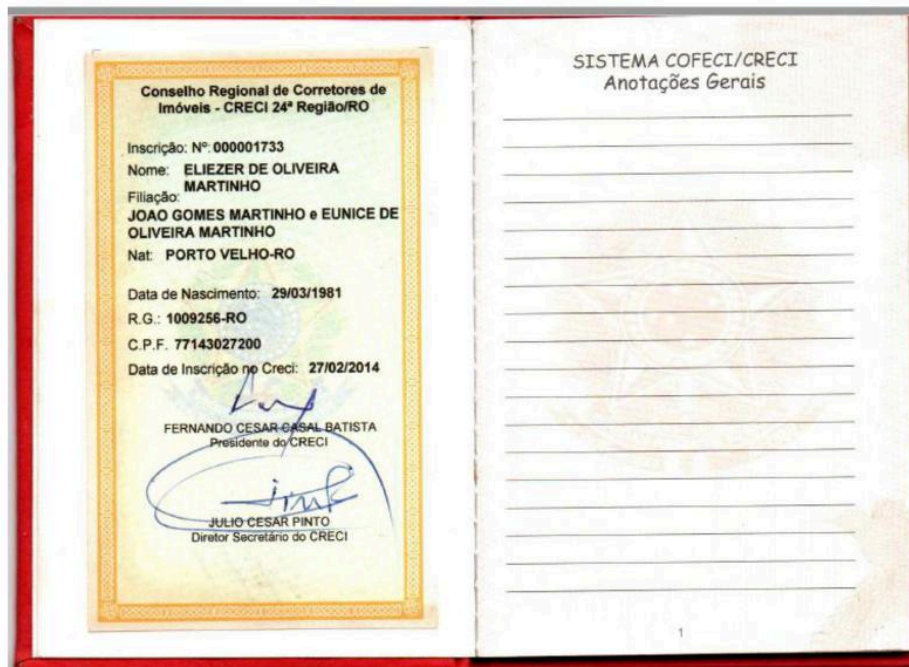 Conselho Regional de Corretores de
Imóveis - CRECI 24ª Região/RO
Inscrição: Nº: 000001733
Nome: ELIEZER DE OLIVEIRA
MARTINHO
Filiação:
JOAO GOMES MARTINHO e EUNICE DE
OLIVEIRA MARTINHO
Nat: PORTO VELHO-RO
Data de Nascimento: 29/03/1981
R.G.: 1009256-RO
C.P.F. 77143027200
Data de Inscrição no Creci: 27/02/2014
FERNANDO CESAR CASAL BATISTA
Presidente do CRECI
JULIO CESAR PINTO
Diretor Secretário do CRECI
SISTEMA COFECI/CRECI
Anotações Gerais
1